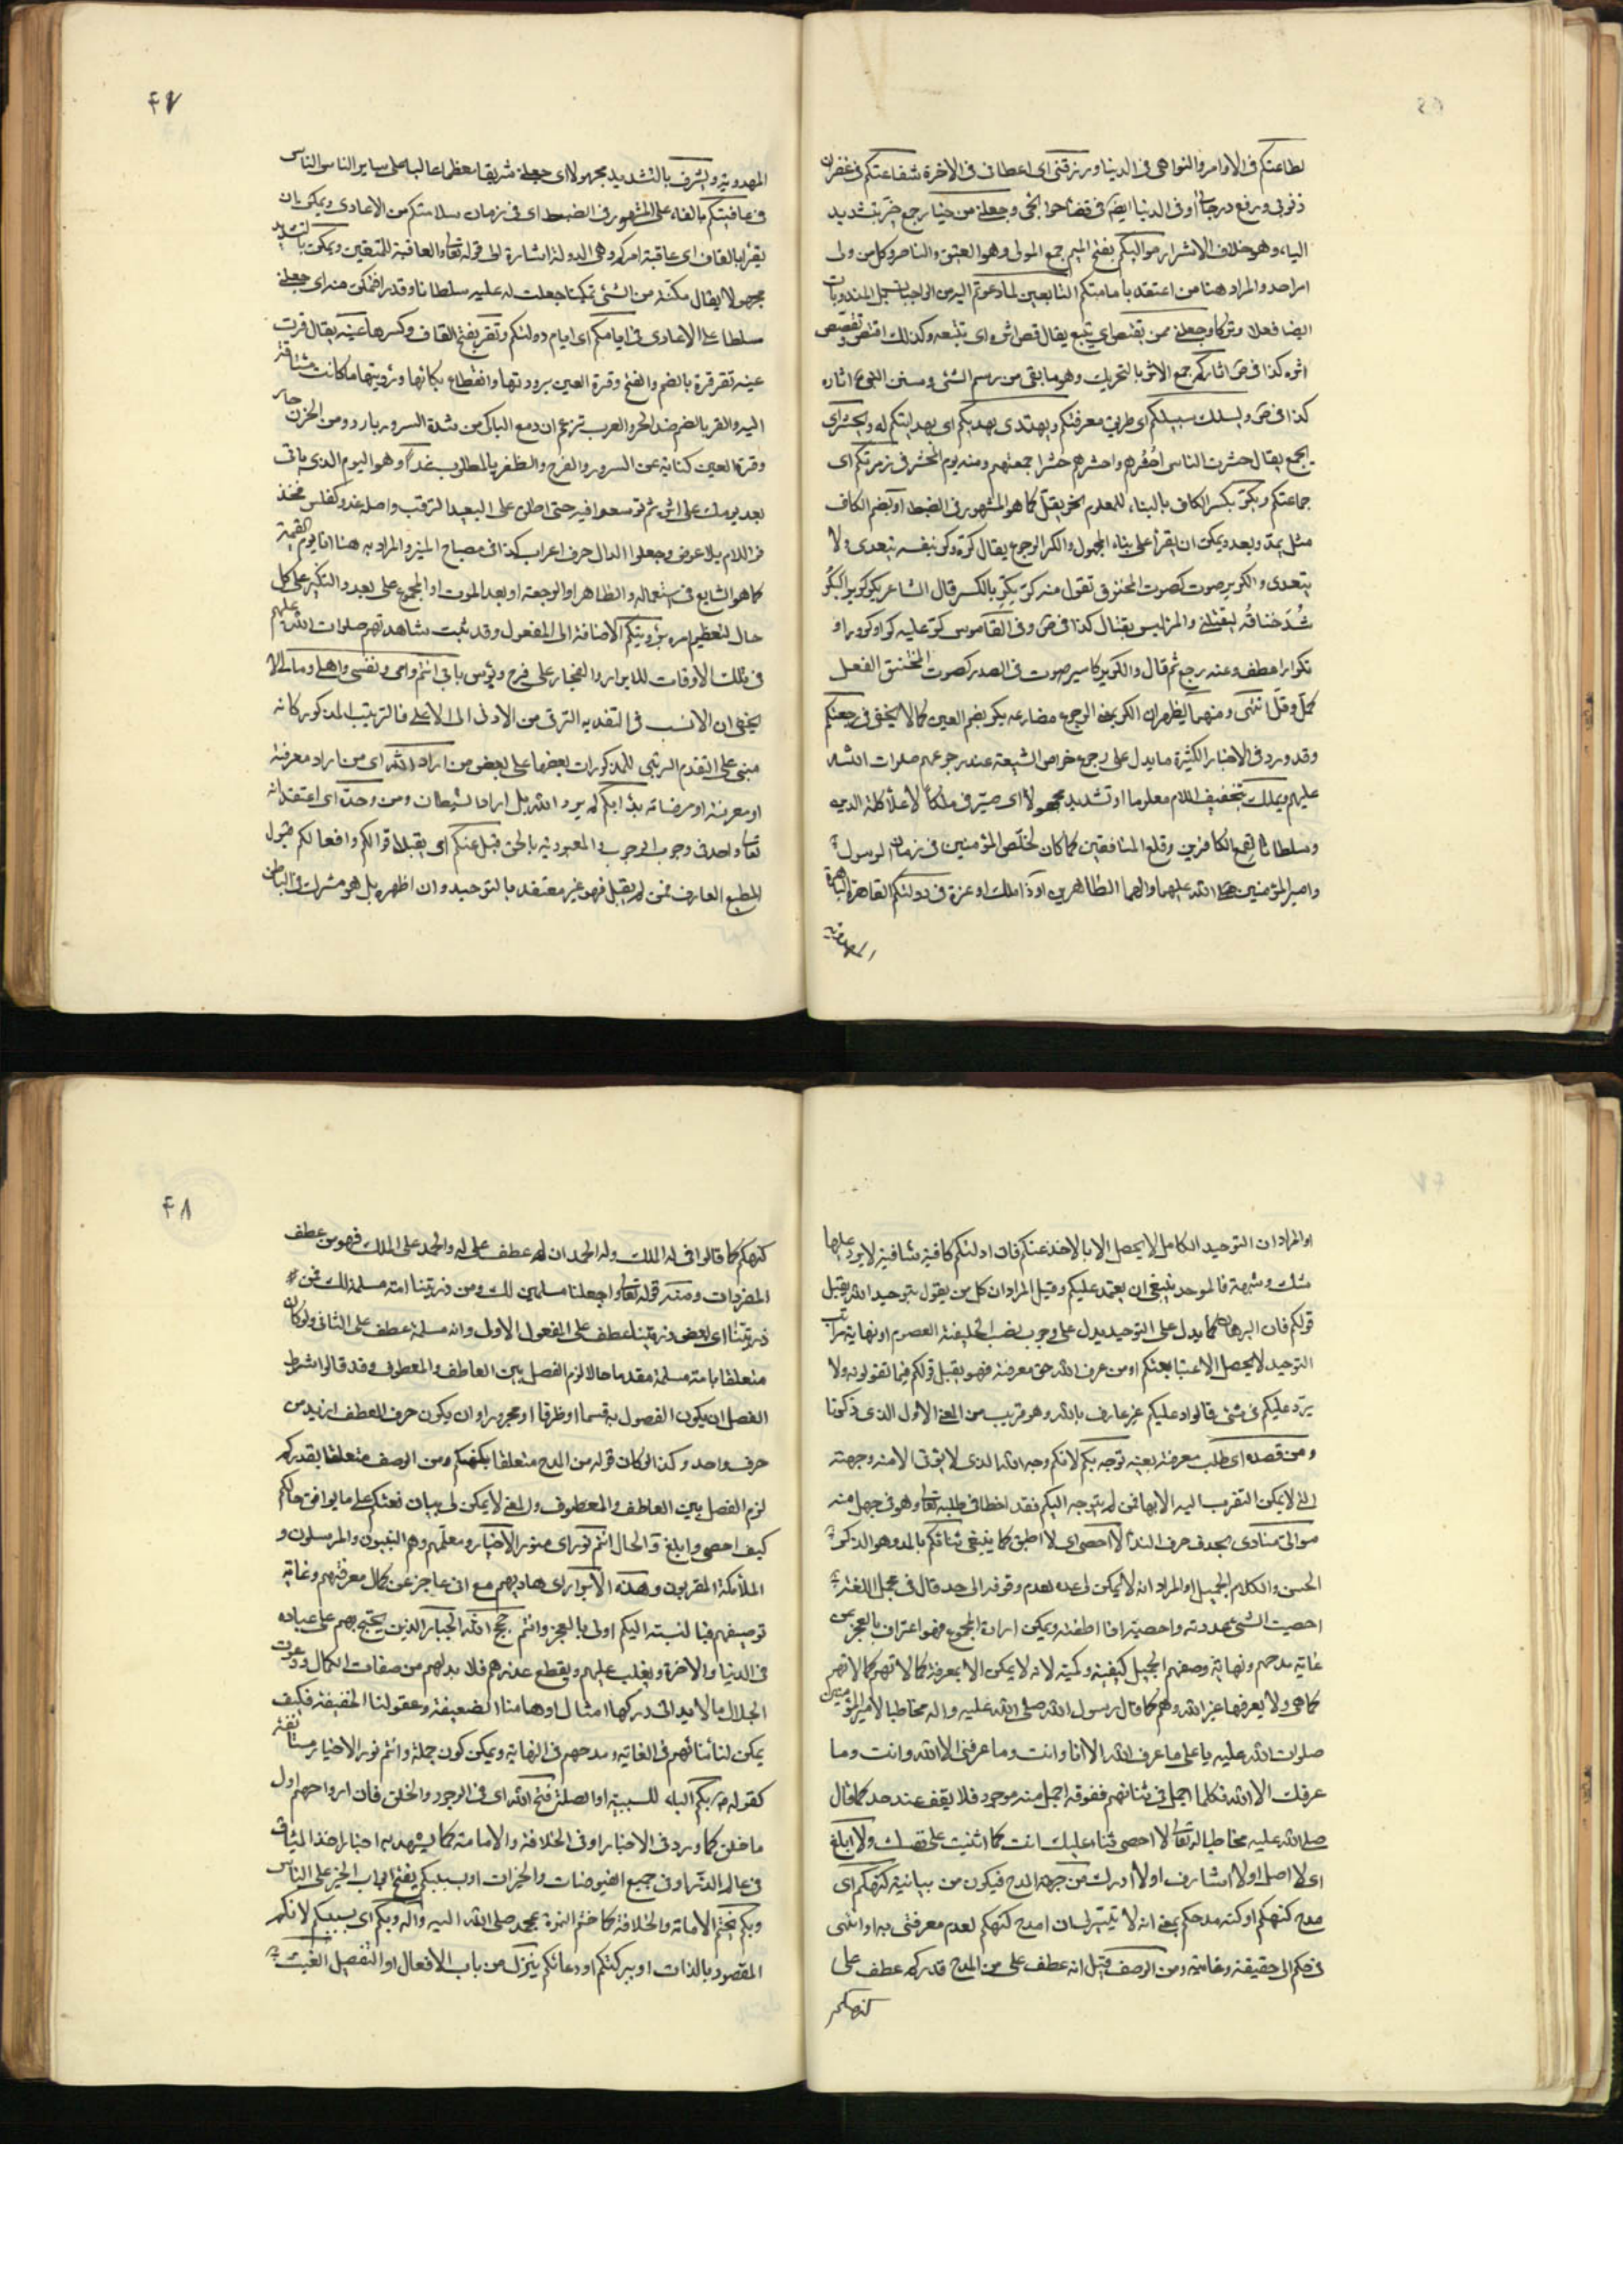 لطاعتكم فى الاوامر والنواهى فى الدنيا ورزقنى اى اعطانى فى الاخرة شفاعتكم فى غفران
ذنوبى ورفع درجاتى اوفى الدنيا ايضا فى قضاء حوائجى وجعلنى من خيار جمع خير بتشديد
الياء وهو خلاف الاشرار مواليكم بفتح الميم جمع المولى وهو العتيق والناصر وكل من ولى
امر احد والمراد هنا من اعتقد بامامتكم التابعين لما دعوتم اليه من الواجبات بل المندوبات
ايضا فعلا وتركا وجعلنى ممن يقتص اى يتبع يقال قص اثره اى تتبعه وكذلك اقتص وتقصص
اثره كذا فى ص اثاركم جمع الاثر بالتحريك وهو ما بقى من رسم الشئ وسنن النبى ع اثاره
كذا فى ص ويسلك سبيلكم اى طريق معرفتكم ويهتدى بهديكم اى بهدايتكم له ويحشر اى
يجمع يقال حشرت الناس احشرهم واحشرهم حشرا جمعتهم ومنه يوم الحشر فى زمرتكم اى
جماعتكم ويكر بكسر الكاف بالبناء للمعلوم نحو يقل كما هو المشهور فى الضبط او بضم الكاف
مثل يمد ويعد ويمكن ان يقرأ على بناء المجهول والكر الرجوع يقال كره وكر بنفسه يتعدى ولا
يتعدى والكرير صوت كصوت المختنق تقول منه كر يكر بالكسر قال الشاعر يكر كرير البكر
شد خناقه ليقتلنى والمرء ليس بقتال كذا فى ص وفى القاموس كر عليه كرا وكرورا و
تكرارا عطف وعنه رجع ثم قال والكرير كامير صوت فى الصدر كصوت المختنق الفعل
كمل وقل انتهى ومنهما يظهر ان الكر بمعنى الرجوع مضارعه يكر بضم العين كما لا يخفى فى رجعتكم
وقد ورد فى الاخبار الكثيرة ما يدل على رجوع خواص الشيعة عند رجوعهم صلوات الله
عليهم ويملك بتخفيف اللام معلوما او تشديده مجهولا اى صير فى ملكا لاعلاء كلمة الدين
وسلطانا لقمع الكافرين وقلع المنافقين كما كان لخلص المؤمنين فى زمان الرسول
وامير المؤمنين صلى الله عليهما والهما الطاهرين او ذا ملك او عزة فى دولتكم القاهرة الباهرة
المهدوية
۴۷
المهدوية ويشرف بالتشديد مجهولا اى جعلنى شريفا معظما عاليا على ساير الناس الناس
فى عافيتكم بالفاء على المشهور فى الضبط اى فى زمان سلامتكم من الاعادى ويمكن ان
يقرأ بالقاف اى عاقبة امركم وهى الدولة اشارة الى قوله تعالى والعاقبة للمتقين ويمكن بالتشديد
مجهولا يقال مكنته من الشئ تمكينا جعلت له عليه سلطانا وقدرة فتمكن منه اى جعلنى
سلطانا على الاعادى فى ايامكم اى ايام دولتكم وتقر بفتح القاف وكسرها عينه يقال قرت
عينه تقر قرة بالضم والفتح وقرة العين برودتها وانقطاع بكائها ورؤيتها ما كانت مشتاقة
اليه والقر بالضم ضد الحر والعرب تزعم ان دمع الباكى من شدة السرور بارد ومن الحزن حار
وقرة العين كناية عن السرور والفرح والظفر بالمطلوب غدا وهو اليوم الذى ياتى
بعد يومك على اثره ثم توسعوا فيه حتى اطلق على البعيد المترقب واصله غدو كفلس فحذف
اللام بلا عوض وجعلوا الدال حرف اعراب كذا فى مصباح المنير والمراد به هنا اما يوم القيمة
كما هو الشايع فى استعماله والظاهر او الرجعة او بعد الموت او المجموع على بعد والتنكير على كل
حال لتعظيم امره برؤيتكم الاضافة الى المفعول وقد ثبت مشاهدتهم صلوات الله عليهم
فى تلك الاوقات للابرار والفجار على فرح وبؤس بابى انتم وامى ونفسى واهلى ومالى لا
يخفى ان الانسب فى التفدية الترقى من الادنى الى الاعلى فالترتيب المذكور كانه
مبنى على التقدم الرتبى للمذكورات بعضها على بعض من اراد الله اى من اراد معرفته
او معرفته او مرضاته بدأ بكم لم يرد الله بل اراد الشيطان ومن وحده اى اعتقد انه
تعالى واحد فى وجوب الوجوب والمعبودية بالحق قبل عنكم اى يقبل اقوالكم وافعالكم قبول
المطيع العارف فمن لم يقبل فهو غير معتقد بالتوحيد وان اظهره بل هو مشرك فى الباطن
او المراد ان التوحيد الكامل لا يحصل الا بالاخذ عنكم فان ادلتكم كافية شافية لا يورد عليها
شك وشبهة فالموحد ينبغى ان يعتمد عليكم وقيل المراد ان كل من يقول بتوحيد الله يقبل
قولكم فان البرهان كما يدل على التوحيد يدل على وجوب نصب الخليفة المعصوم او نهاية مراتب
التوحيد لا يحصل الا بمتابعتكم او من عرف الله حق معرفته فهو يقبل قولكم فيما تقولونه ولا
يرد عليكم فى شئ فالراد عليكم غير عارف بالله وهو قريب من المعنى الاول الذى ذكرنا
ومن قصده اى طلب معرفته بعينه توجه بكم لانكم وجه الله الذى لا يؤتى الا منه وجهته
التى لا يمكن التقرب اليه الا بها فمن لم يتوجه اليكم فقد اخطأ فى طلبه تعالى وهو فى جهل منه
موالى منادى بحذف حرف النداء لا احصى اى لا اطيق كما ينبغى ثنائكم بالمد وهو الذكر
الحسن والكلام الجميل او المراد انه لا يمكن لى عده لعدم وقوفه الى حد قال فى مجمل اللغة
احصيت الشئ عددته واحصيته اذا اطقته ويمكن ارادة المجموع فهو اعتراف بالعجز عن
غاية مدحهم ونهاية وصفهم الجميل كيفية وكمية لانه لا يمكن الا بمعرفة كمالاتهم كمالاتهم
كما هى ولا يعرفها غير الله وهم كما قال رسول الله صلى الله عليه واله مخاطبا لامير المؤمنين
صلوات الله عليه يا على ما عرف الله الا انا وانت وما عرفنى الا الله وانت وما
عرفك الا الله فكلما اجمل فى ثنائهم ففوقه اجمل منه موجود فلا يقف عند حد كما قال
صلى الله عليه مخاطبا له تعالى لا احصى ثناء عليك انت كما اثنيت على نفسك ولا ابلغ
اى لا اصل او لا اشارف او لا ادرك من جهة المدح فيكون من بيانية كنهكم اى
مدح كنهكم او كنه مدحكم بمعنى انه لا يتيسر لسان امدح كنهكم لعدم معرفتى به او انتهى
فى مدحكم الى حقيقته وغايته ومن الوصف قيل انه عطف على من المدح قدركم عطف على
كنهكم
۴۸
كنهكم كما قالوا فى له الملك وله الحمد ان له عطف على له والحمد على الملك فهو من عطف
المفردات ومنه قوله تعالى واجعلنا مسلمين لك ومن ذريتنا امة مسلمة لك فمن
ذريتنا اى بعض ذريتنا عطف على المفعول الاول وامة مسلمة عطف على الثانى ولو كان
متعلقا بامة مسلمة مقدما حالا لزم الفصل بين العاطف والمعطوف وقد قالوا شرط
الفصل ان يكون المفصول به قسما او ظرفا او مجرورا وان يكون حرف العطف ازيد من
حرف واحد وكذا لو كان قوله من المدح متعلقا بكنهكم ومن الوصف متعلقا بقدركم
لزم الفصل بين العاطف والمعطوف والمعنى لا يمكن لى بيان نعتكم على ما يوافق حالكم
كيف احصى وابلغ والحال انتم نور اى منور الاخيار ومعلمهم وهم النبيون والمرسلون و
الملائكة المقربون وهداة الابرار اى هاديهم مع انى عاجز عن كمال معرفتهم وغاية
توصيفهم فبالنسبة اليكم اولى بالعجز وانتم حجج الله الجبار الذين يحتج بهم على عباده
فى الدنيا والاخرة ويغلب عليهم ويقطع عذرهم فلا بد لهم من صفات الكمال ونعوت
الجلال ما لا يدانى دركها امثال اوهامنا الضعيفة وعقولنا الخفيفة فكيف
يمكن لنا ثنائهم فى الغاية ومدحهم فى النهاية ويمكن كون جملة وانتم نور الاخيار مستانفة
كقوله بكم الباء للسببية او الصلة فتح الله اى فى الوجود والخلق فان ارواحهم اول
ما خلق كما ورد فى الاخبار او فى الخلافة والامامة كما يشهد به اخبار اخذ الميثاق
فى عالم الذر او فى جميع الفيوضات والخيرات او بسببكم يفتح ابواب الخير على الناس
وبكم يختم الامامة والخلافة كما ختم النبوة بمحمد صلى الله عليه واله وبكم اى بسببكم لانكم
المقصود بالذات او ببركتكم او دعائكم ينزل من باب الافعال او التفعيل الغيث